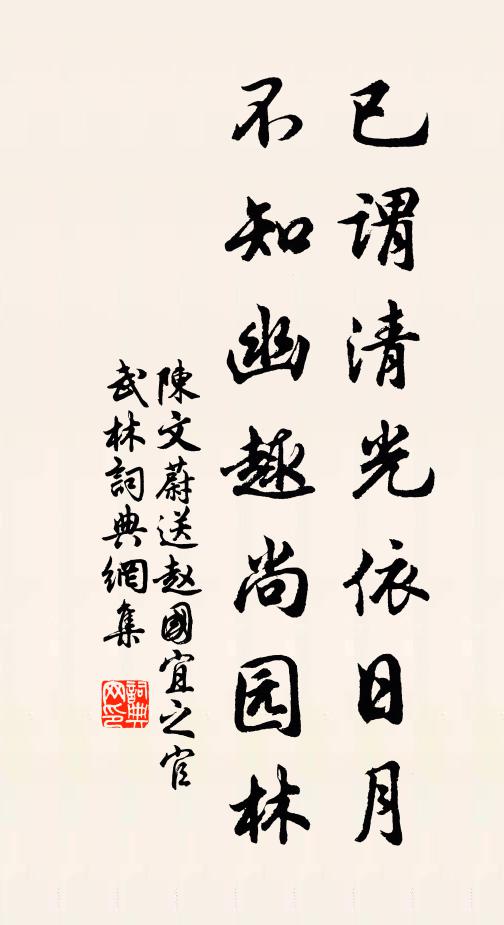 已谓清光依日月
不知幽趣尚园林
陳文蔚送赵國宜之官
武林詞典網集
詞典网印